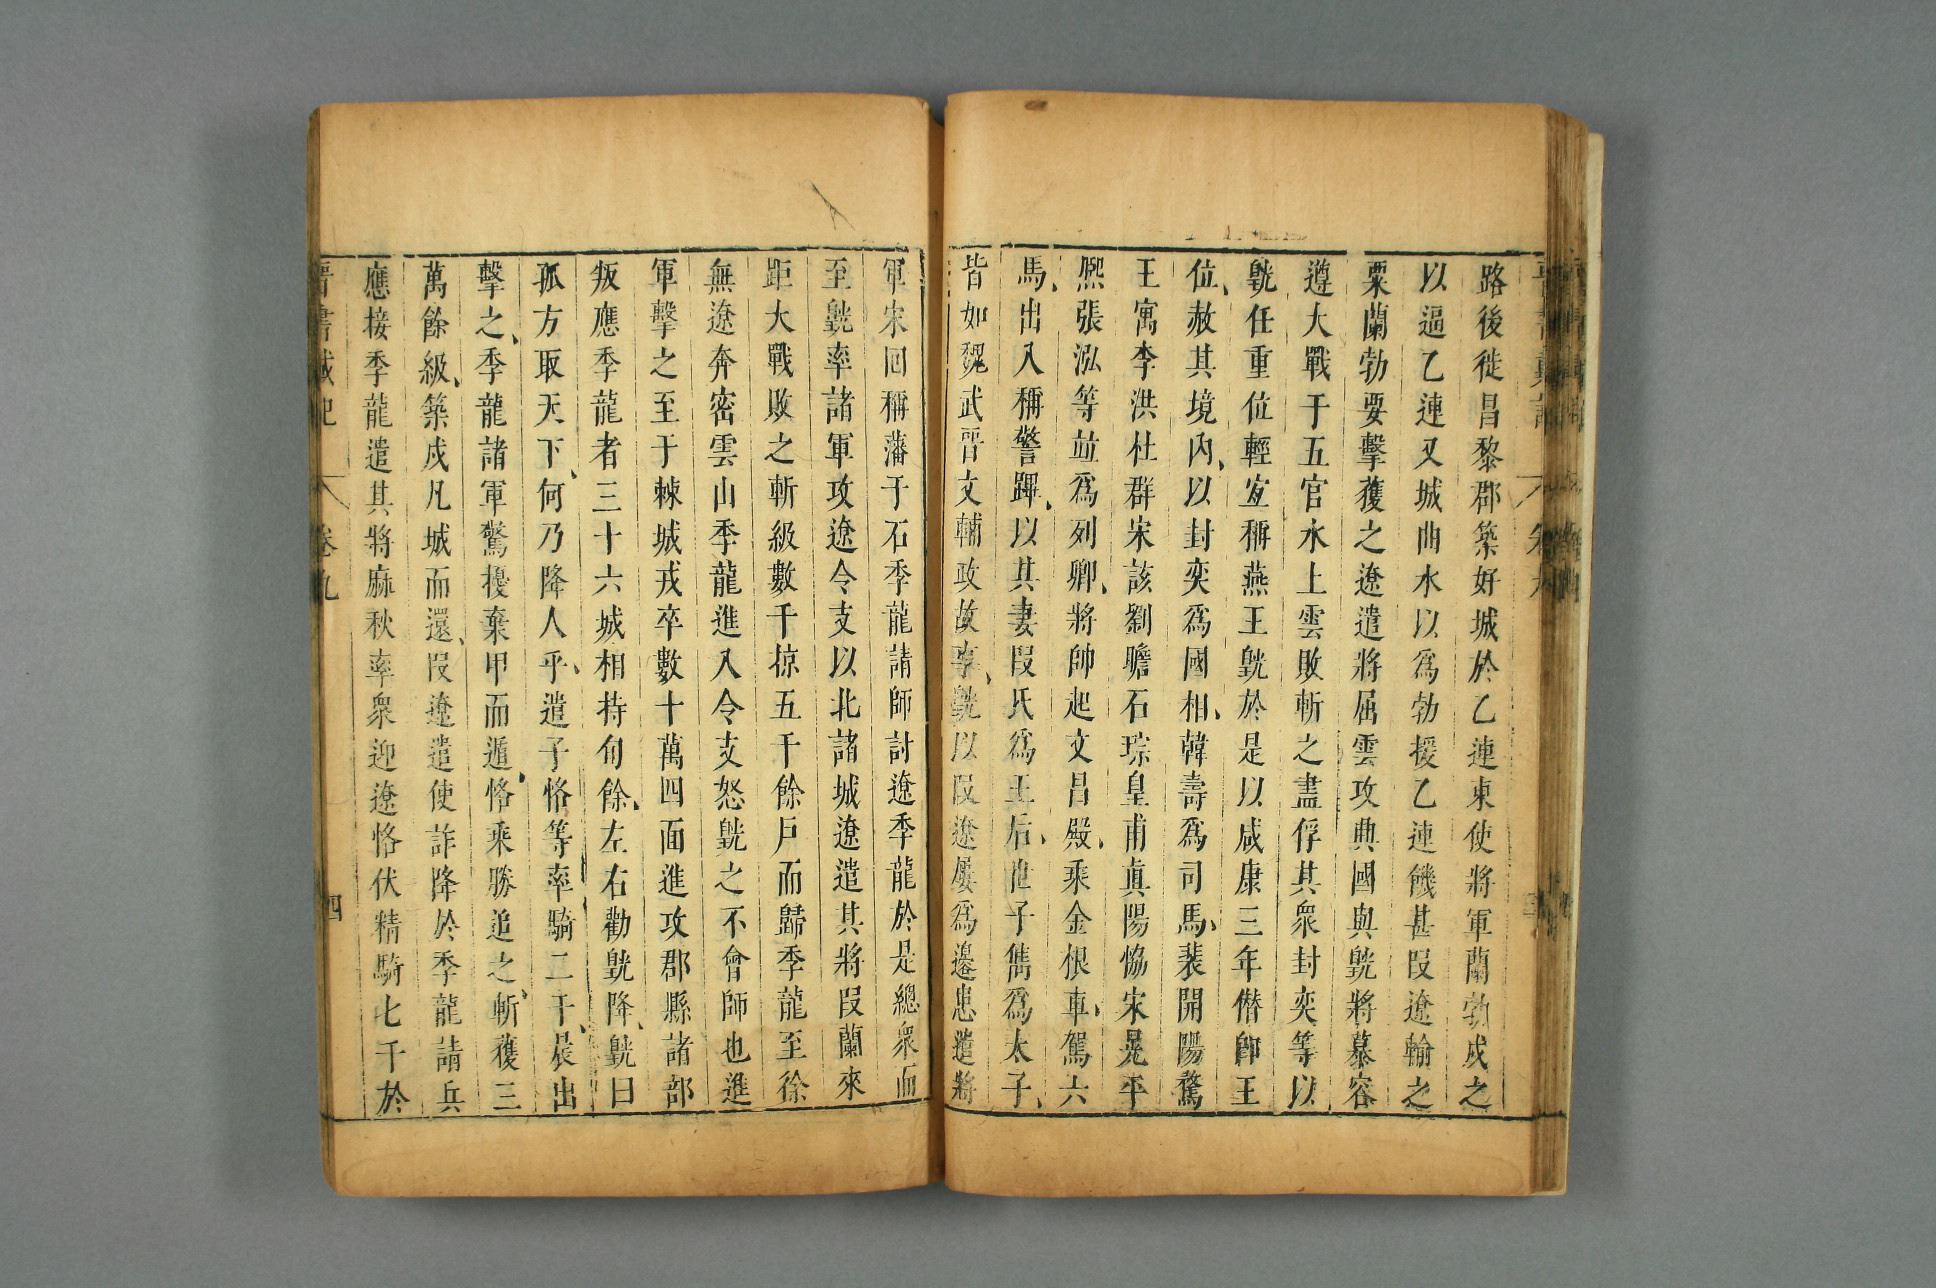 路後徙昌黎郡築好城於乙連東使將軍蘭勃戍之
以逼乙連又城曲水以爲勃援乙連饑甚段遼輸之
粟蘭勃要擊獲之遼遣將屈雲攻興國與皝將慕容
遵大戰于五官水上雲敗斬之盡俘其衆封奕等以
皝任重位輕宜稱燕王皝於是以咸康三年僭卽王
位赦其境內以封奕爲國相韓壽爲司馬裴開陽騖
王寓李洪杜群宋該劉瞻石琮皇甫眞陽恊宋晃平
熈張泓等並爲列卿將帥起文昌殿乘金根車駕六
馬出入稱警蹕以其妻段氏爲王后世子雋爲太子
皆如魏武晉文輔政故事皝以段遼屢爲邊患遣將
軍宋囘稱藩于石季龍請師討遼季龍於是總衆而
至皝率諸軍攻遼令支以北諸城遼遣其將段蘭來
距大戰敗之斬級數千掠五千餘戶而歸季龍至徐
無遼奔密雲山季龍進入令支怒皝之不會師也進
軍擊之至于棘城戎卒數十萬四面進攻郡縣諸部
叛應季龍者三十六城相持旬餘左右勸皝降皝曰
孤方取天下何乃降人乎遣子恪等率騎二千晨出
擊之季龍諸軍驚擾棄甲而遁恪乘勝追之斬獲三
萬餘級築戍凡城而還段遼遣使詐降於季龍請兵
應接季龍遣其將麻秋率衆迎遼恪伏精騎七千於
晉書載記 卷九 四